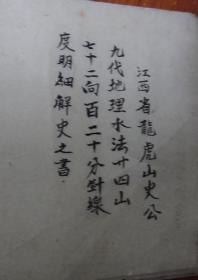 江西省龍虎山史公
九代地理水法廿四山
七十二向百二十分對線
度明細解史之書.